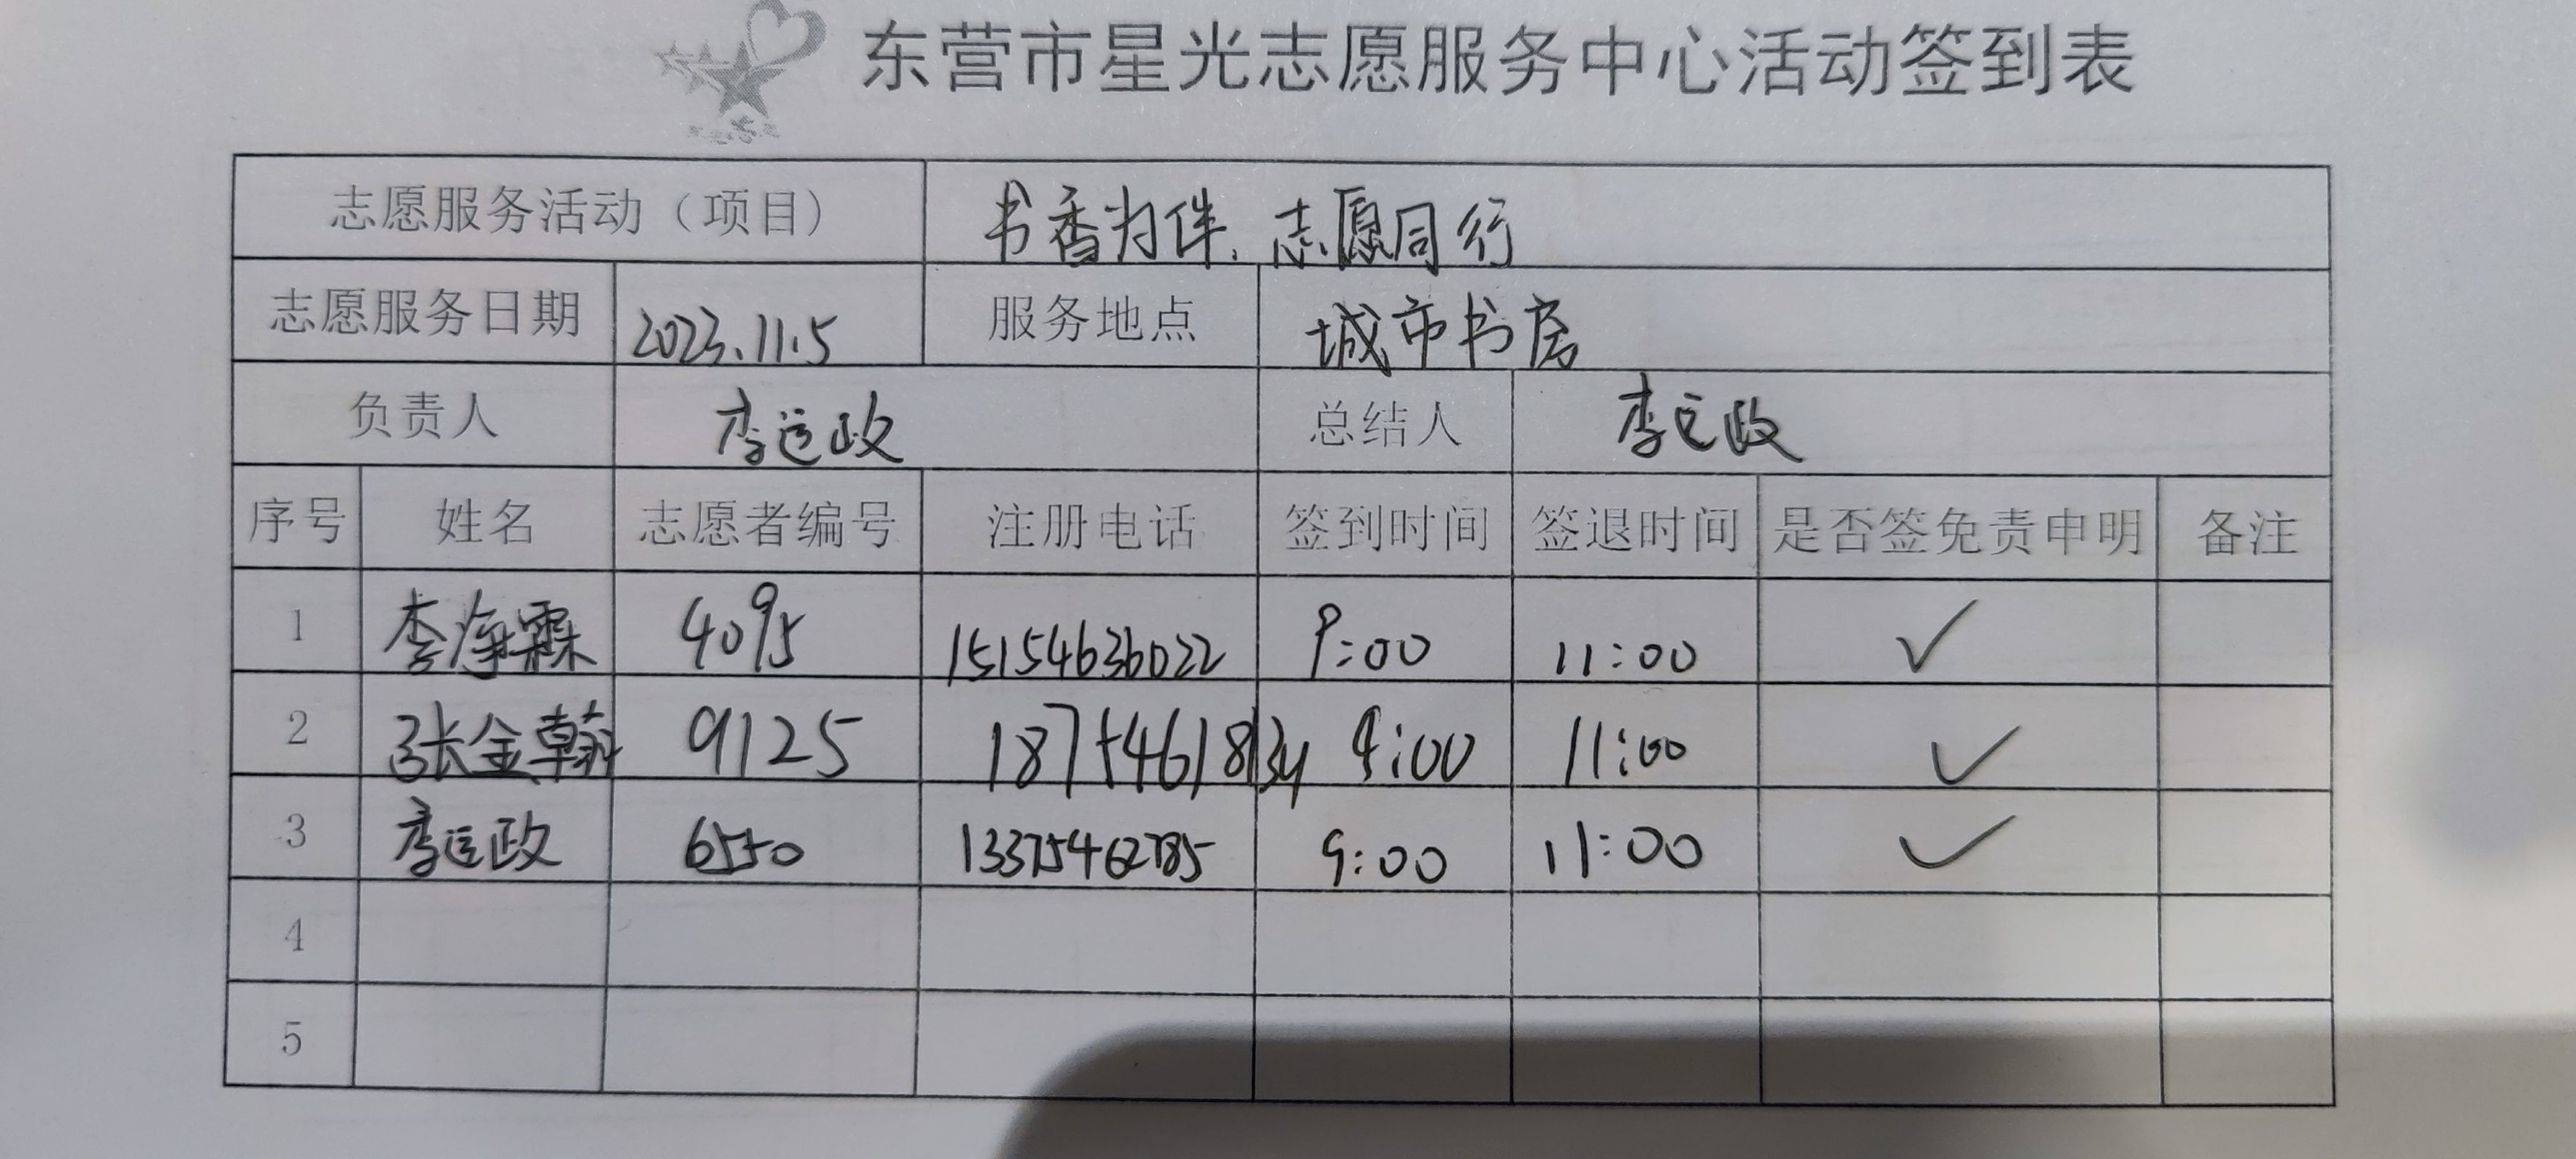 东营市星光志愿服务中心活动签到表
志愿服务活动（项目） 书香为伴、志愿同行
志愿服务日期 2023.11.5 服务地点 城市书房
负责人 李运政 总结人 李运政
序号 姓名 志愿者编号 注册电话 签到时间 签退时间 是否签免责申明 备注
1 李海霖 4095 15154636022 9:00 11:00 ✓
2 张金翰 9125 18754618134 9:00 11:00 ✓
3 李运政 6550 13375462785 9:00 11:00 ✓
4
5